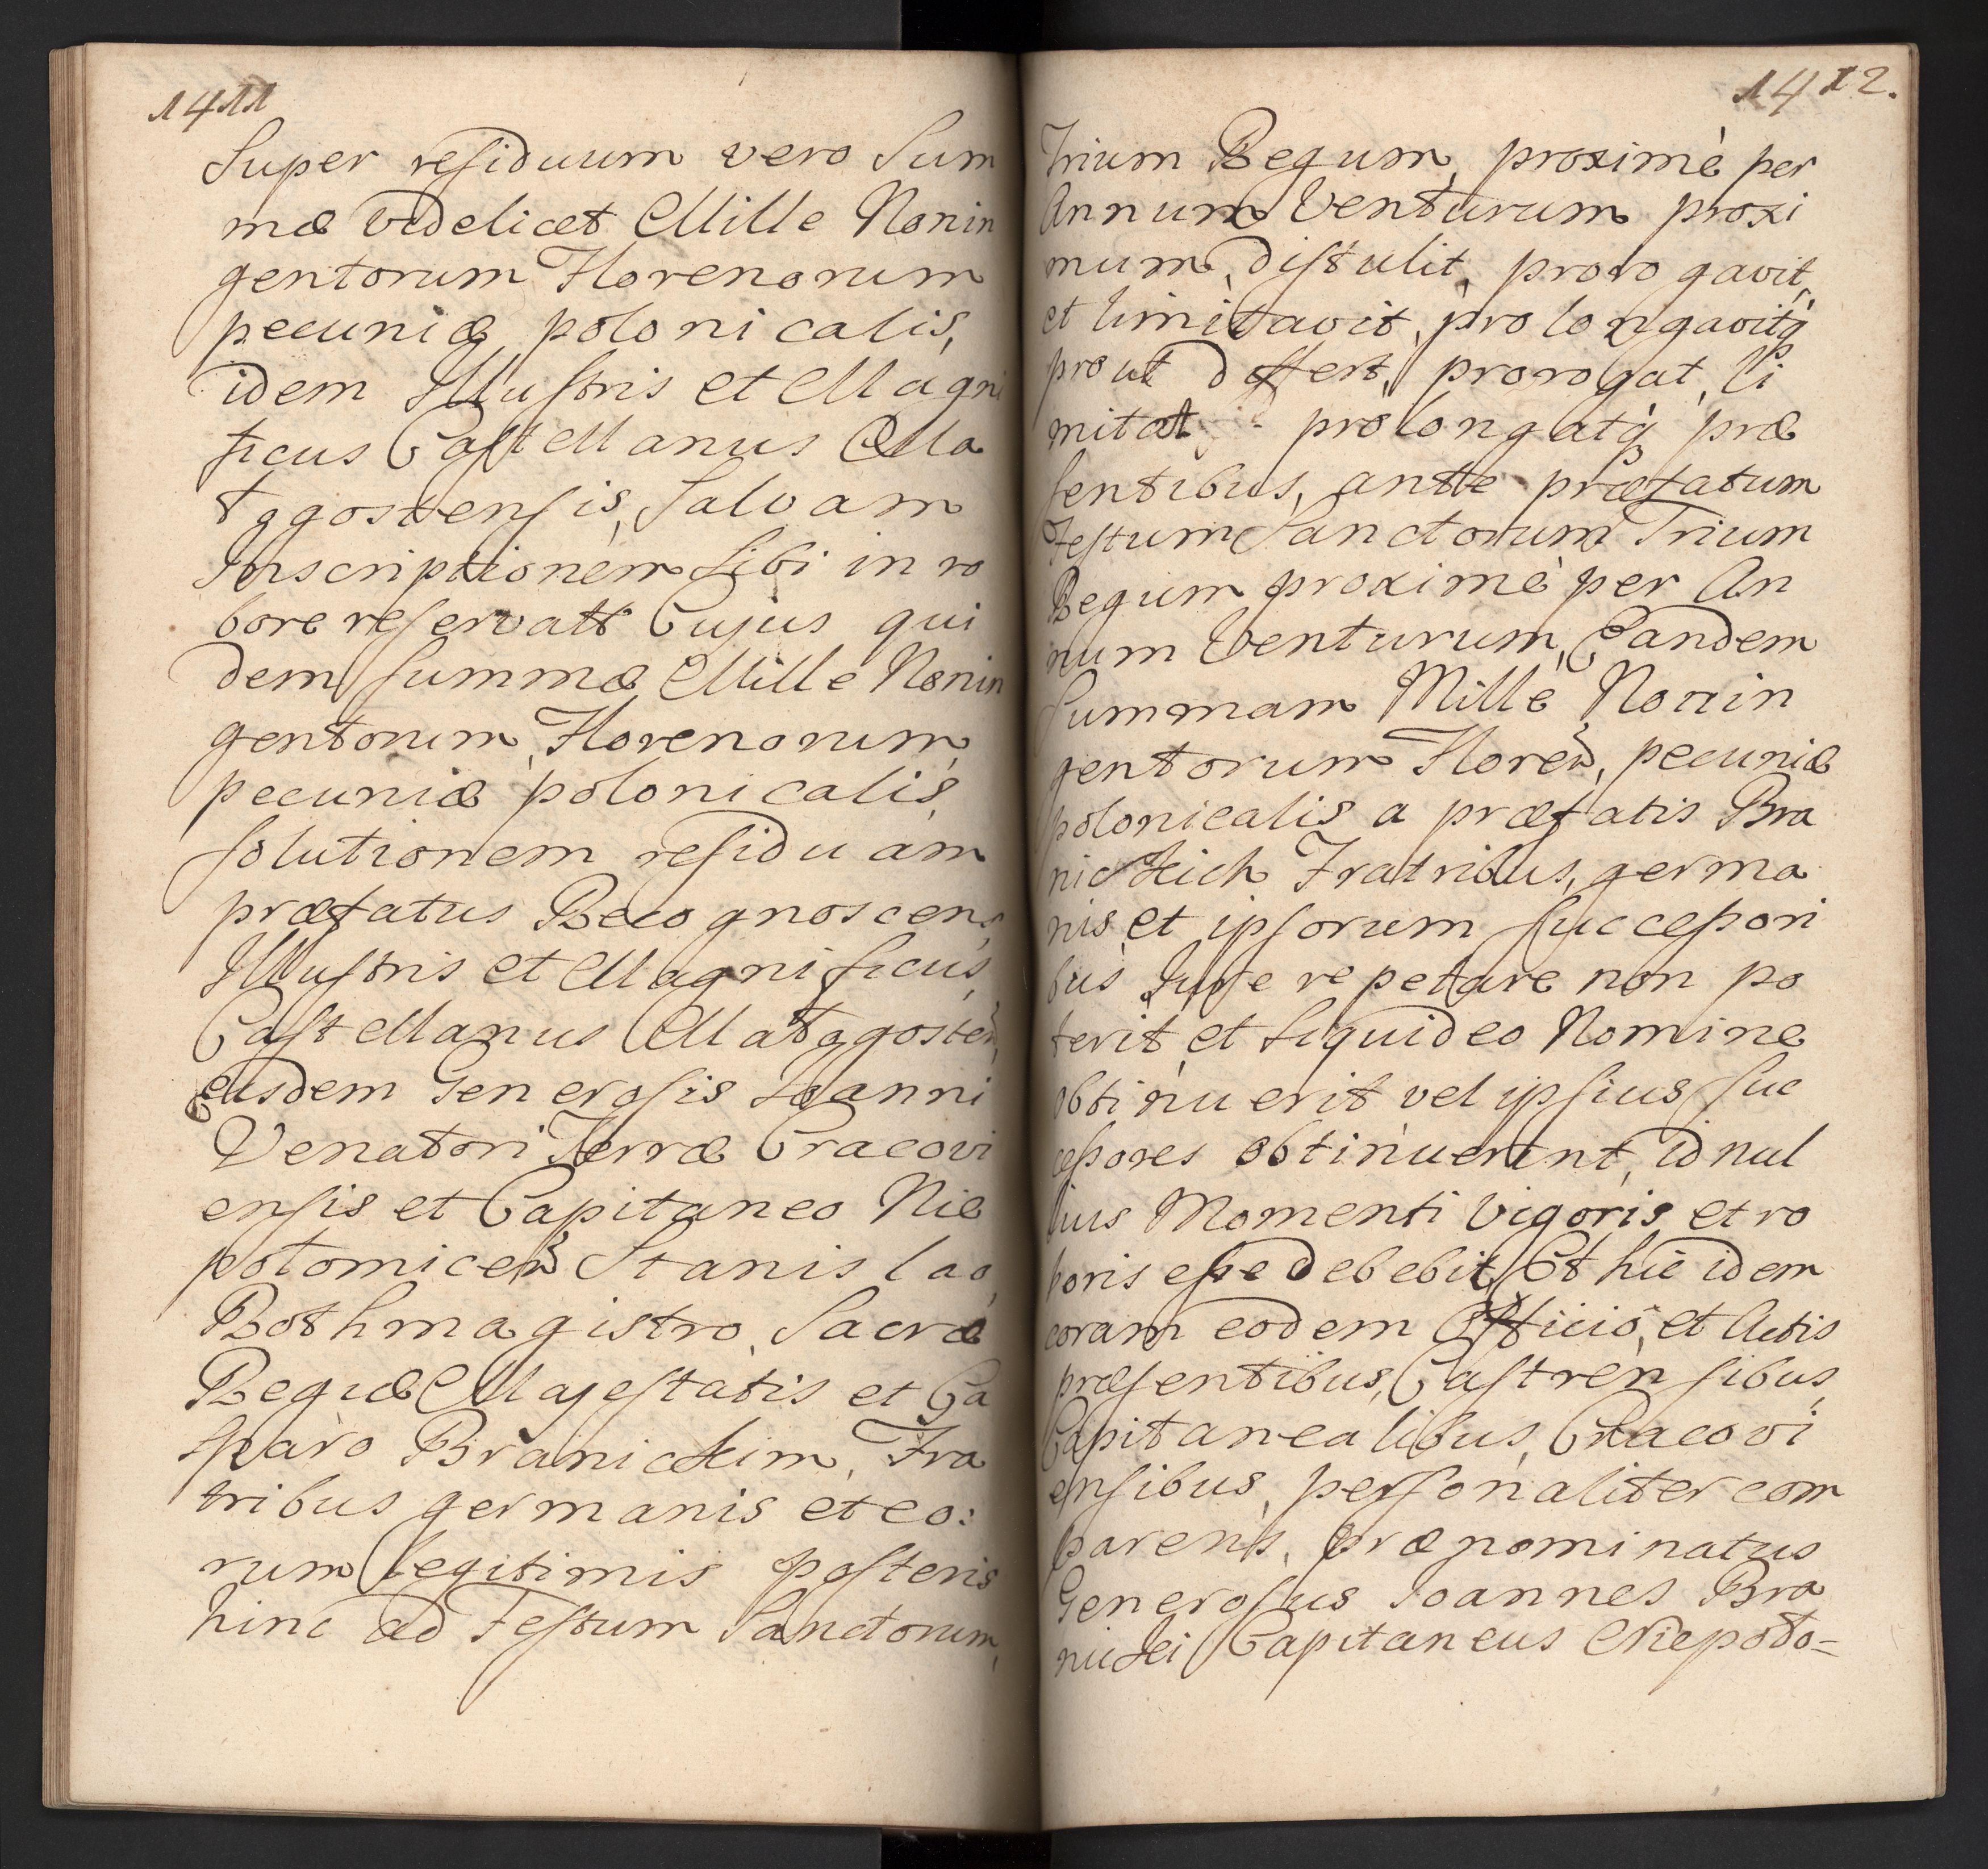 1411
Super residuum vero Sum
mæ videlicet Mille Nonin
gentorum Florenorum
pecuniæ polonicalis,
idem Illustris et Magni
ficus Castellanus Ma
łggostensis, Salvam
Inscriptionem sibi in ro
bore reservatt Cujus qui
dem summæ Mille Nonin
gentorum Florenorum
pecuniæ polonicalis
solutionem residuam
præfatus Recognoscens
Illustris et Magnificus
Castellanus Małggosten
eisdem Generosis Ioanni
Venatori Terræ Cracovi
ensis et Capitaneo Nie
polomicen Stanislao
Rothmagistro Sacræ
Regiæ Majestatis et Ga
sparo Branickim, Fra
tribus germanis et eo:
rum legitimis posteris
hinc ad Festum Sanctorum,
1412.
Trium Regum, proxime per
Annum Venturum proxi
mum, distulit, prorogavit,
et limitavit, prolongavitq
prout differt, prorogat, li
mitat prolongatq præ
sentibus, ante præfatum
Festum Sanctorum Trium
Regum proxime per An
num Venturum, Eandem
Summam Mille Nonin
gentorum Floren, pecuniæ
polonicalis a præfatis Bra
nickich Fratribus, germa
nis et ipsorum successori
bus Iure repetere non po
terit et siquid eo Nomine
obtinuerit vel ipsius suc
cessores obtinuerint, id nul
lius Momenti Vigoris et ro
boris esse debebit, Et hic idem
coram eodem Officio et Actis
præsentibus, Castrensibus
Capitanealibus, Cracovi
ensibus, personaliter com
parens, prænominatus
Generosus Ioannes Bra
nicki Capitaneus Niepoło=